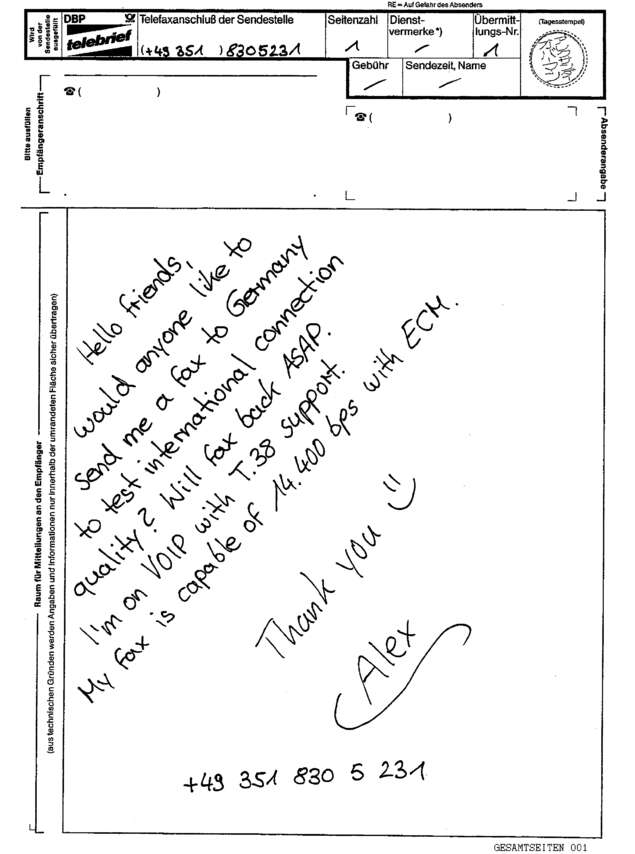 RE = Auf Gefahr des Absenders
Wird von der Sendestelle ausgefüllt
DBP
telebrief
Telefaxanschluß der Sendestelle
(+49 351 ) 8305231
Seitenzahl
1
Dienst-
vermerke*)
Übermitt-
lungs-Nr.
1
(Tagesstempel)
Gebühr
Sendezeit, Name
Bitte ausfüllen
Empfängeranschrift
☎ ( )
☎ ( )
Absenderangabe
Raum für Mitteilungen an den Empfänger
(aus technischen Gründen werden Angaben und Informationen nur innerhalb der umrandeten Fläche sicher übertragen)
Hello friends,
would anyone like to
send me a fax to Germany
to test international connection
quality? Will fax back ASAP.
I'm on VOIP with T.38 support.
My fax is capable of 14.400 bps with ECM.
Thank you :)
Alex
+49 351 830 5 231
GESAMTSEITEN 001